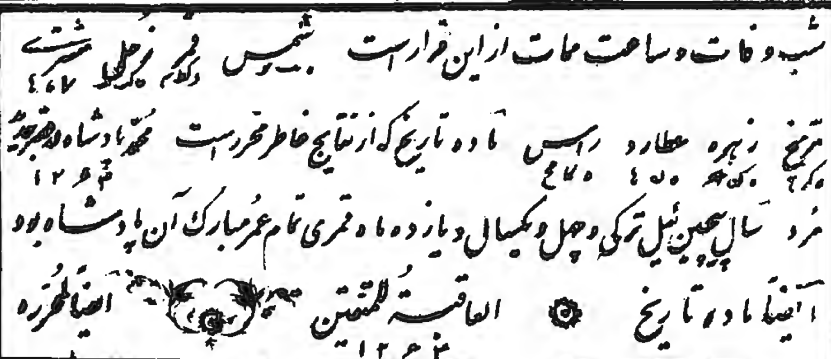 شب وفات و ساعت ممات از این قرار است شمس قمر زحل مشتری
مریخ زهره عطارد راس ماده تاریخ که از نتایج خاطر محرر است محمد پادشاه
۱۲۶۴
مرد سال پیچین ئیل ترکی و چهل و یکسال و یازده ماه قمری تمام عمر مبارک آن پادشاه بود
ایضاً ماده تاریخ العاقبة للمتقین ایضاً لمحرره
۱۲۶۴